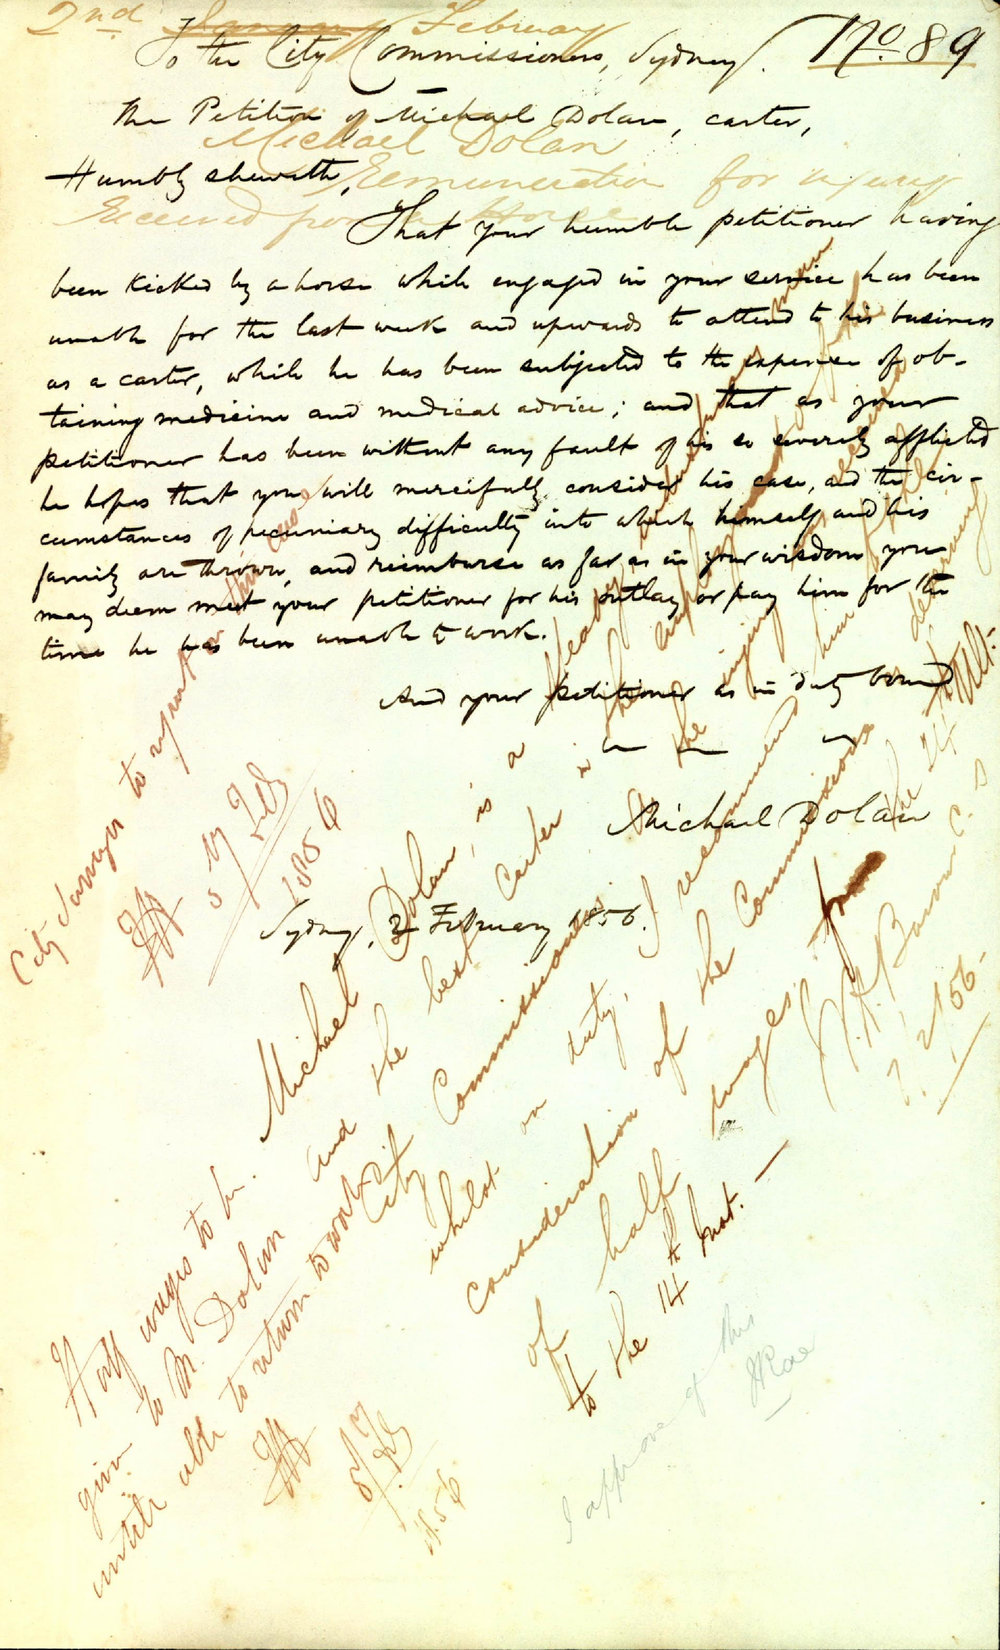 2nd January February
No. 89
To the City Commissioners, Sydney.
The Petition of Michael Dolan, carter,
Michael Dolan
Humbly sheweth,
Remuneration for injury
Received from a Horse
That your humble petitioner having
been kicked by a horse while engaged in your service has been
unable for the last week and upwards to attend to his business
as a carter, while he has been subjected to the expense of ob-
taining medicine and medical advice; and that as your
petitioner has been without any fault of his so severely afflicted
he hopes that you will mercifully consider his case, and the cir-
cumstances of pecuniary difficulty into which himself and his
family are thrown, and reimburse as far as in your wisdom you
may deem meet your petitioner for his outlay or pay him for the
time he has been unable to work.
And your petitioner as in duty bound
Michael Dolan
Sydney, 2 February 1856.
City Surveyor to report on this case
5/7 Feby
1856
Michael Dolan, is a
and the best carter in the
City Commissioners
whilst on duty, I recommend him
consideration of the Commissioners
of half wages from the 24th Ult.
to the 14th Inst.
7.2.56
Half wages to be
given to M. Dolan
until able to return to work
5/7 Feby
1856
I approve of this